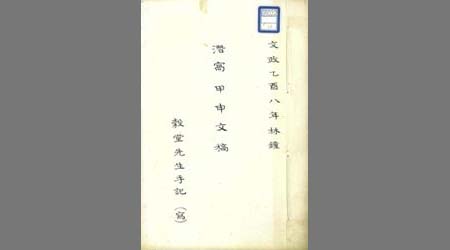 文政乙酉八年林鐘
潜窩甲申文稿
穀堂先生手記（寫）